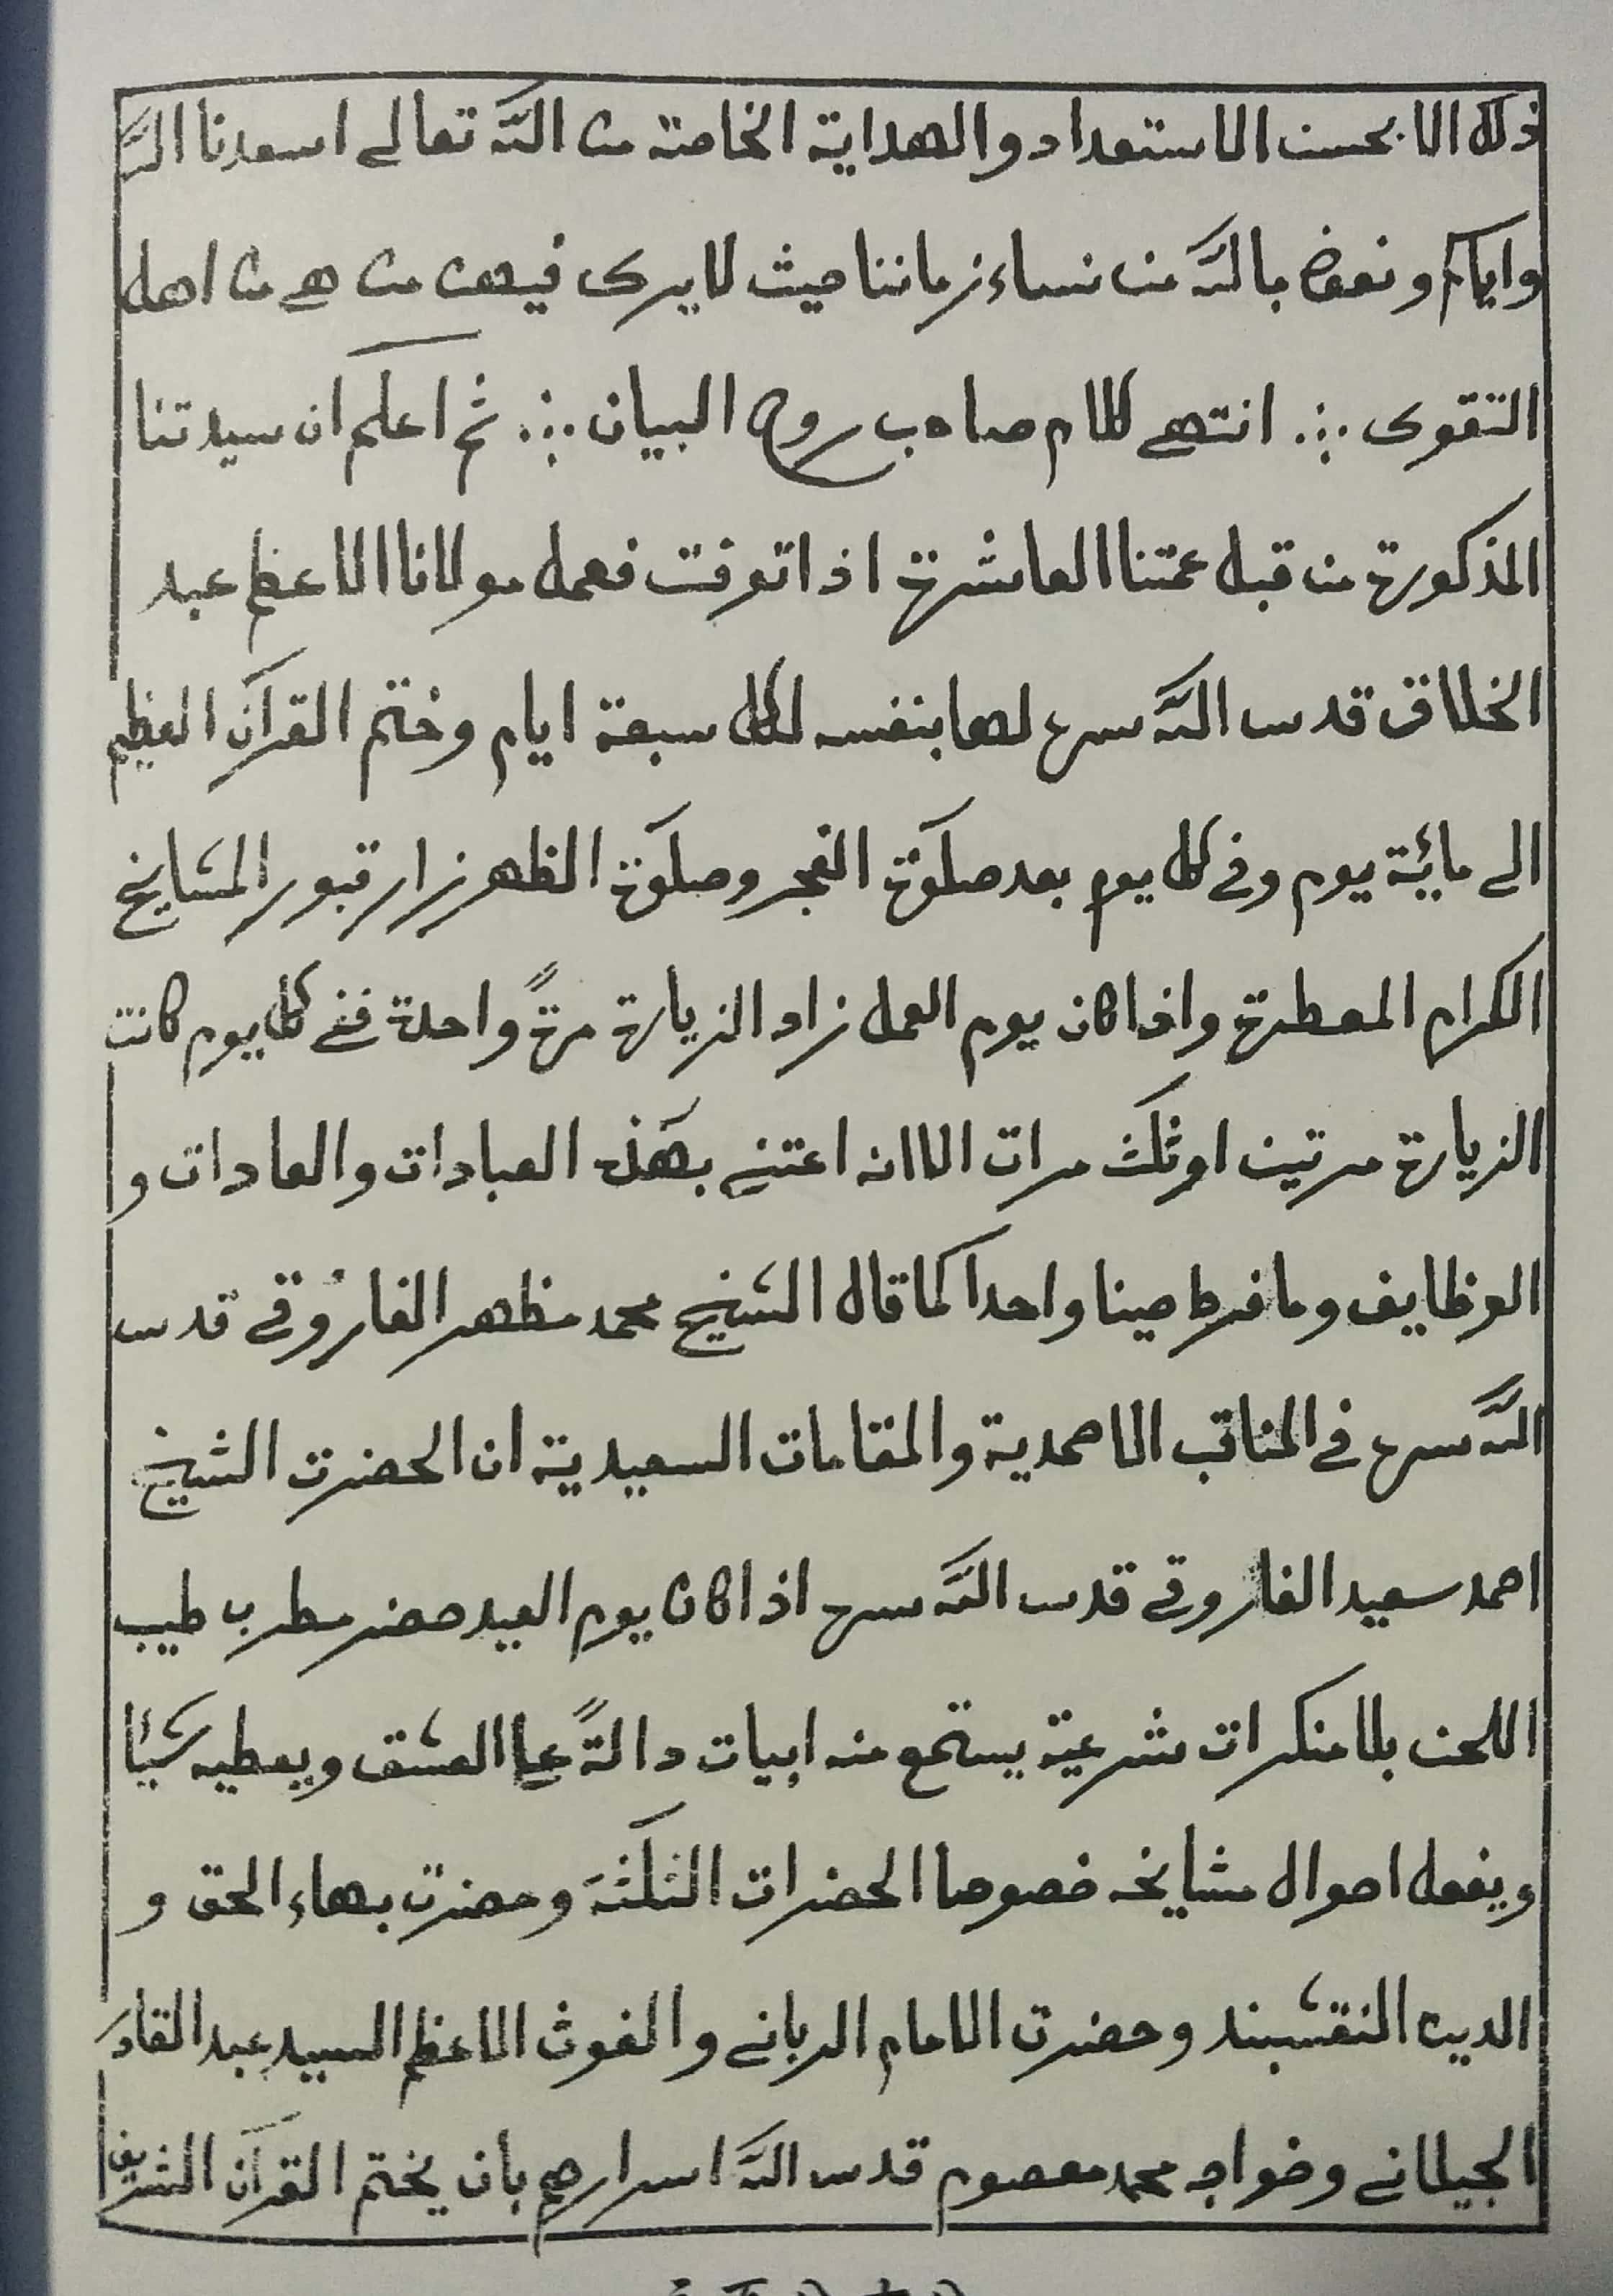 ذلك الا بحسن الاستعداد والهداية الخاصة من الله تعالى اسعدنا الله
واياكم ونعوذ بالله من نساء زماننا حيث لا يرى فيهن من هي من اهل
التقوى ∴ انتهى كلام صاحب روح البيان ∴ ثم اعلم ان سيدتنا
المذكورة من قبل عمتنا العاشرة اذا توفت فعمل مولانا الاعظم عبد
الخلاق قدس الله سره لها بنفسه لكل سبعة ايام وختم القرآن العظيم
الى مائة يوم وفي كل يوم بعد صلوة الفجر وصلوة الظهر زار قبور المشايخ
الكرام المعطرة واذا كان يوم العمل زاد الزيارة مرةً واحدة ففي كل يوم كانت
الزيارة مرتين او ثلث مرات الا انه اعتنى بهذه العبادات والعادات و
الوظايف وما فرط حينا واحدا كما قال الشيخ محمد مظهر الفاروقي قدس
الله سره في المناقب الاحمدية والمقامات السعيدية ان الحضرت الشيخ
احمد سعيد الفاروقي قدس الله سره اذا كان يوم العيد حضر مطرب طيب
اللحن بلا منكرات شرعية يستمع منه ابيات دالةً على العشق ويعطيه شيئا
ويفعل احوال مشايخه خصوصا الحضرات الثلثة وحضرت بهاء الحق و
الدين النقشبند وحضرت الامام الرباني والغوث الاعظم السيد عبد القادر
الجيلاني وخواجه محمد معصوم قدس الله اسرارهم بان يختم القرآن الشريف